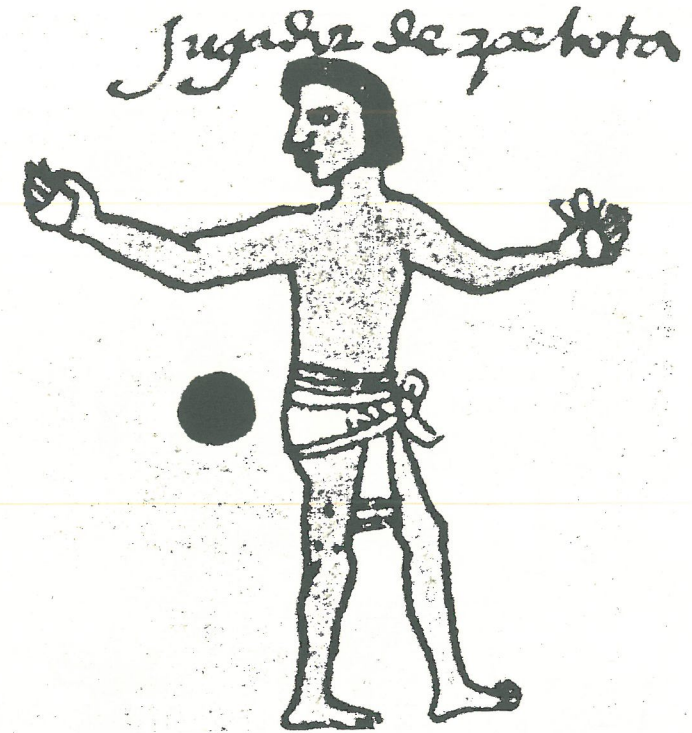 Jugador de pelota